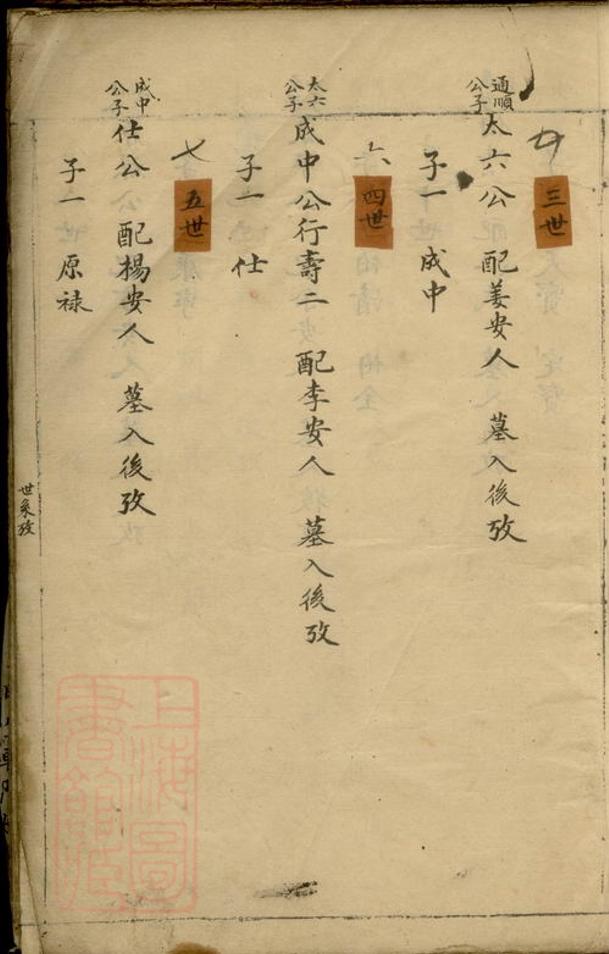 三世
通順公子
太六公 配姜安人 墓入後攷
子一 成中
六
四世
太六公子
成中公行壽二 配李安人 墓入後攷
子一 仕
七
五世
成中公子
仕公 配楊安人 墓入後攷
子一 原祿
世系攷
上海圖
書館